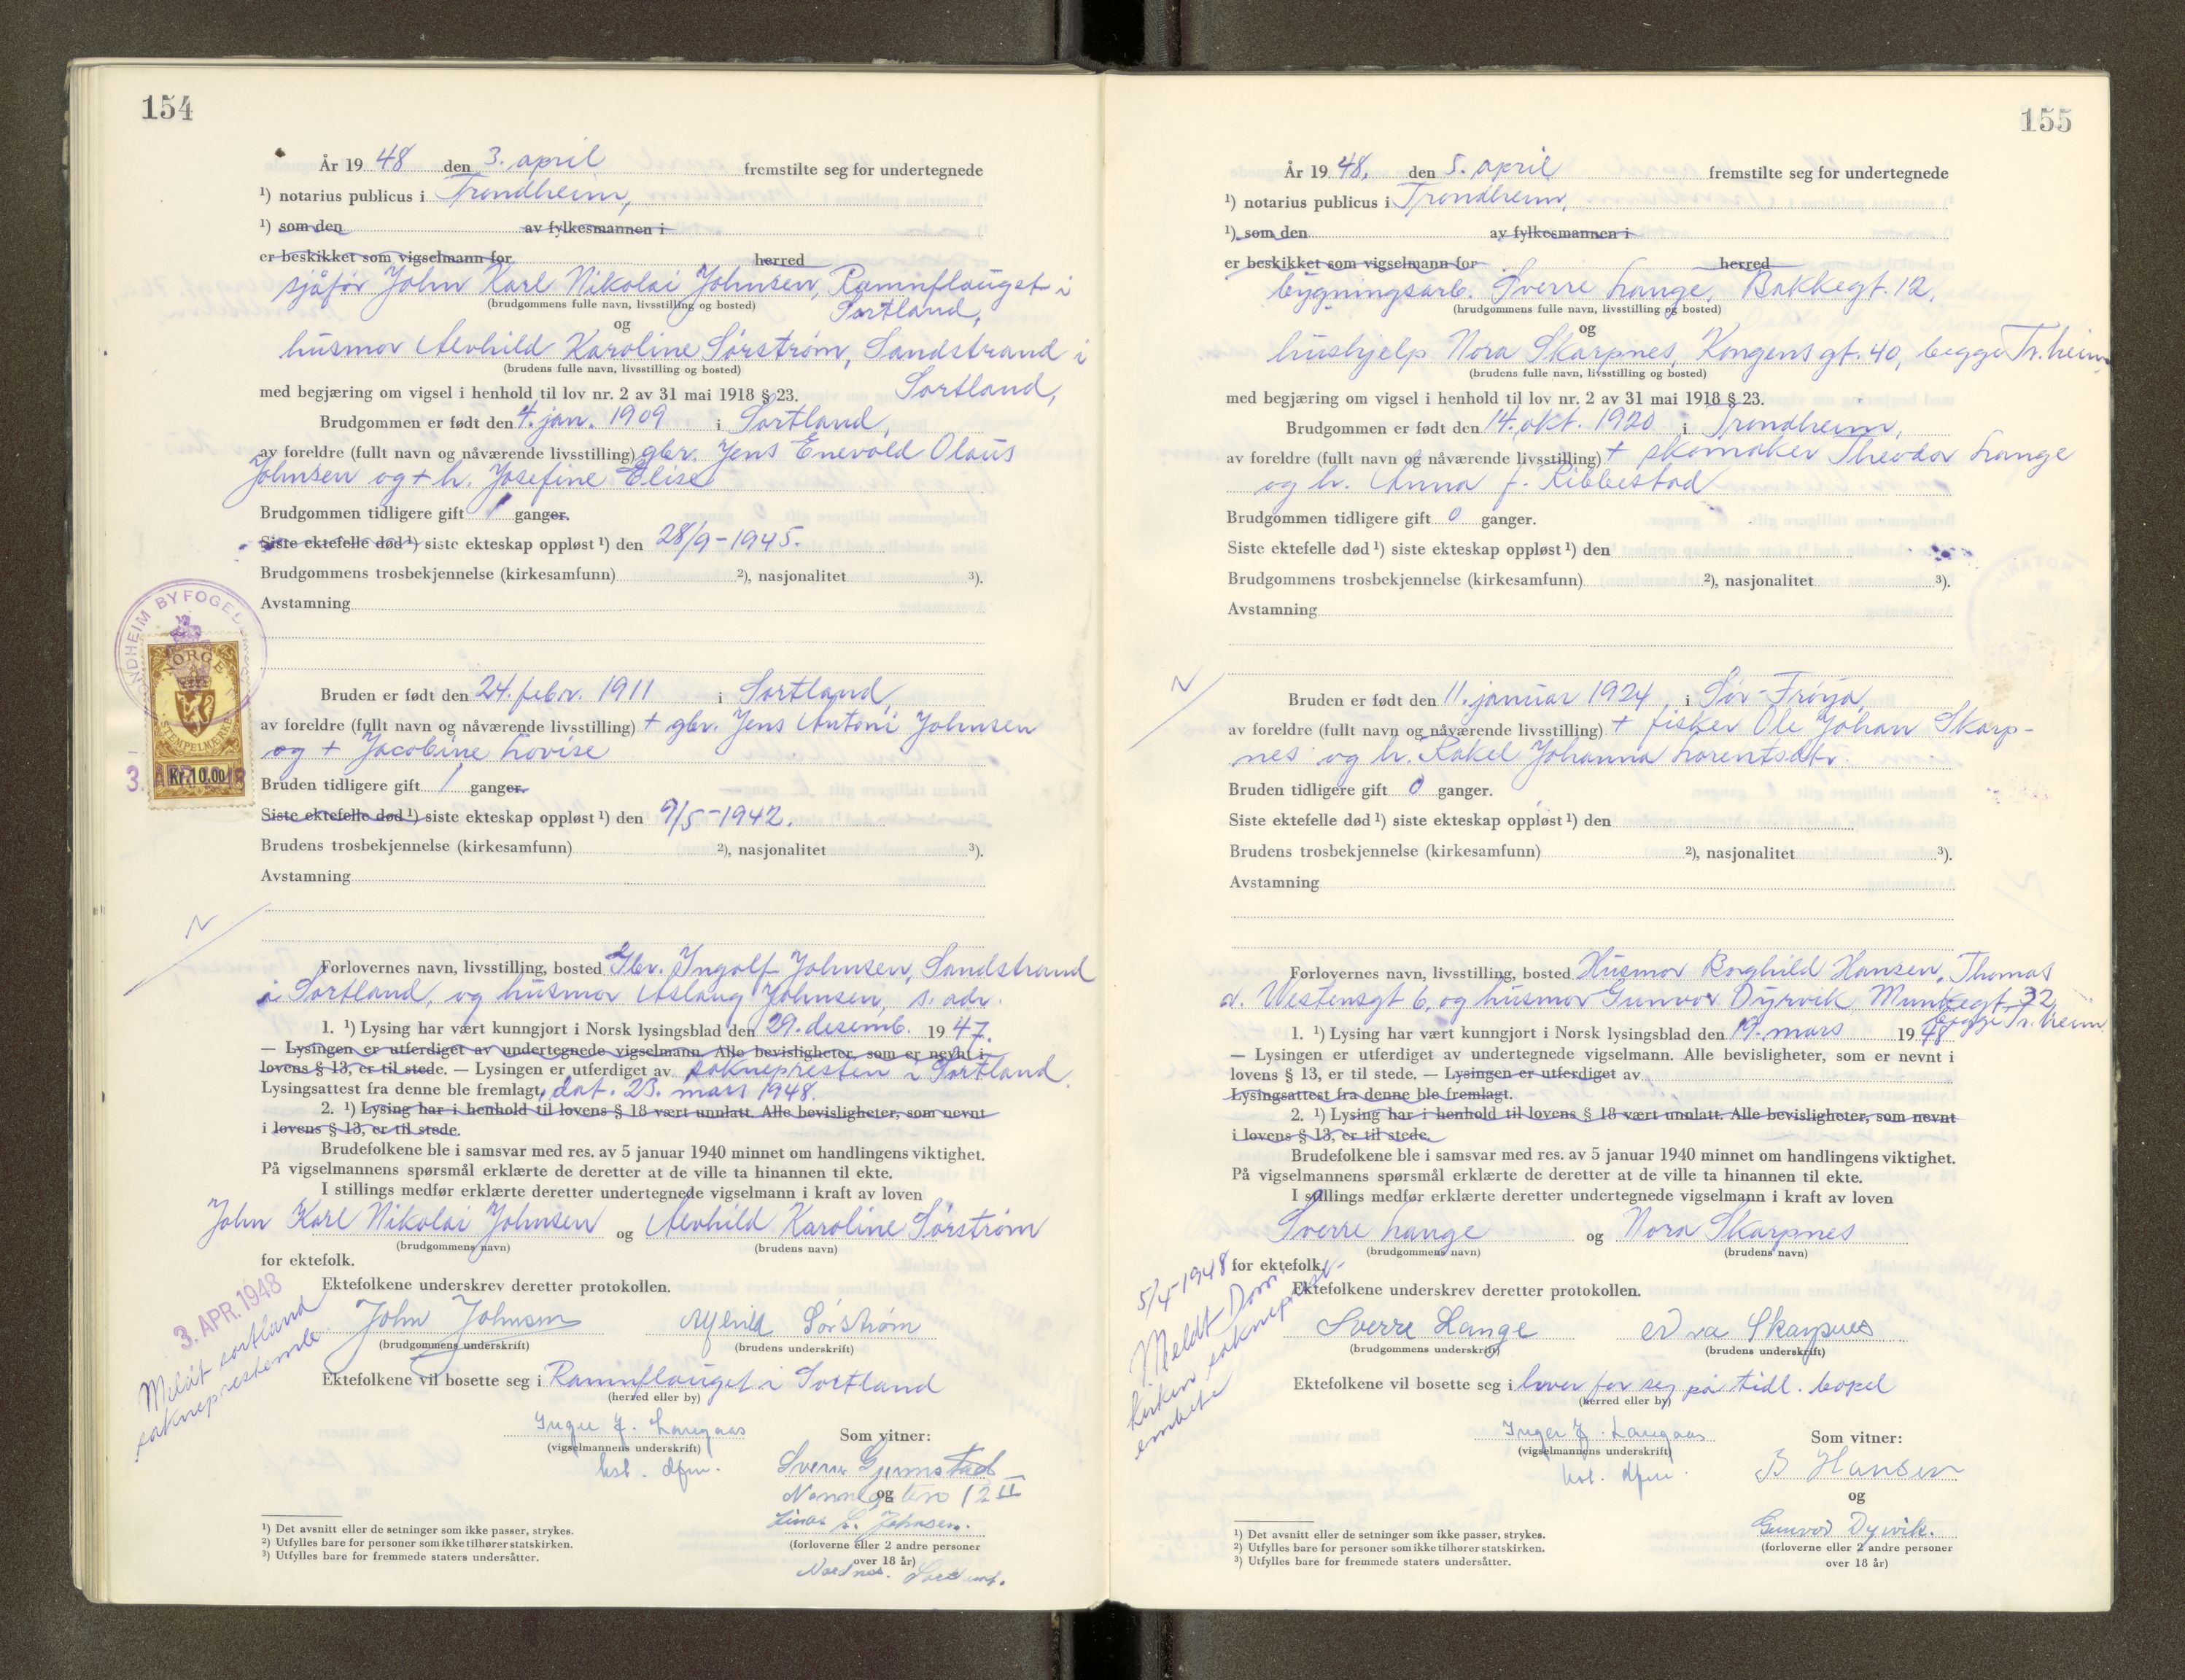 154
År 19 48 den 3. april fremstilte seg for undertegnede
¹) notarius publicus i Trondheim,
¹) som den av fylkesmannen i
er beskikket som vigselmann for herred
sjåfør John Karl Nikolai Johnsen, Ramnflauget i
(brudgommens fulle navn, livsstilling og bosted) Sortland,
og
husmor Alvhild Karoline Sørstrøm, Sandstrand i
(brudens fulle navn, livsstilling og bosted)
med begjæring om vigsel i henhold til lov nr. 2 av 31 mai 1918 § 23. Sortland,
Brudgommen er født den 4. jan. 1909 i Sortland,
av foreldre (fullt navn og nåværende livsstilling) gbr. Jens Enevold Olaus
Johnsen og + h. Josefine Elise
Brudgommen tidligere gift 1 ganger.
Siste ektefelle død ¹) siste ekteskap oppløst ¹) den 28/9-1945.
Brudgommens trosbekjennelse (kirkesamfunn) ²), nasjonalitet ³).
Avstamning
TRONDHEIM BYFOGED
NORGE
STEMPELMERKE
3. APR. 1948
Kr. 10.00
Bruden er født den 24. febr. 1911 i Sortland,
av foreldre (fullt navn og nåværende livsstilling) + gbr. Jens Antoni Johnsen
og + Jacobine Lovise
Bruden tidligere gift 1 ganger.
Siste ektefelle død ¹) siste ekteskap oppløst ¹) den 9/5-1942.
Brudens trosbekjennelse (kirkesamfunn) ²), nasjonalitet ³).
Avstamning
N
Forlovernes navn, livsstilling, bosted Gbr. Ingolf Johnsen, Sandstrand
i Sortland, og husmor Aslaug Johnsen, s. adr.
1. ¹) Lysing har vært kunngjort i Norsk lysingsblad den 29. desemb. 19 47.
— Lysingen er utferdiget av undertegnede vigselmann. Alle bevisligheter, som er nevnt i
lovens § 13, er til stede. — Lysingen er utferdiget av soknepresten i Sortland.
Lysingsattest fra denne ble fremlagt, dat. 23. mars 1948.
2. ¹) Lysing har i henhold til lovens § 18 vært unnlatt. Alle bevisligheter, som nevnt
i lovens § 13, er til stede.
Brudefolkene ble i samsvar med res. av 5 januar 1940 minnet om handlingens viktighet.
På vigselmannens spørsmål erklærte de deretter at de ville ta hinannen til ekte.
I stillings medfør erklærte deretter undertegnede vigselmann i kraft av loven
John Karl Nikolai Johnsen og Alvhild Karoline Sørstrøm
(brudgommens navn) (brudens navn)
for ektefolk.
Ektefolkene underskrev deretter protokollen.
3. APR. 1948
Meldt Sortland
sokneprestembe
John Johnsen Alfhild Sørstrøm
(brudgommens underskrift) (brudens underskrift)
Ektefolkene vil bosette seg i Ramnflauget i Sortland
(herred eller by)
Inger J. Langaas
(vigselmannens underskrift)
kst. dfm.
Som vitner:
Sverre
og 12 II
Johnsen.
(forloverne eller 2 andre personer
over 18 år)
¹) Det avsnitt eller de setninger som ikke passer, strykes.
²) Utfylles bare for personer som ikke tilhører statskirken.
³) Utfylles bare for fremmede staters undersåtter.
155
År 19 48, den 5. april fremstilte seg for undertegnede
¹) notarius publicus i Trondheim,
¹) som den av fylkesmannen i
er beskikket som vigselmann for herred
bygningsarb. Sverre Lange, Bakkegt. 12,
(brudgommens fulle navn, livsstilling og bosted)
og
hushjelp Nora Skarpnes, Kongensgt. 40, begge Tr.heim,
(brudens fulle navn, livsstilling og bosted)
med begjæring om vigsel i henhold til lov nr. 2 av 31 mai 1918 § 23.
Brudgommen er født den 14. okt. 1920 i Trondheim,
av foreldre (fullt navn og nåværende livsstilling) + skomaker Theodor Lange
og h. Anna f. Ribbestad
Brudgommen tidligere gift 0 ganger.
Siste ektefelle død ¹) siste ekteskap oppløst ¹) den
Brudgommens trosbekjennelse (kirkesamfunn) ²), nasjonalitet ³).
Avstamning
N
Bruden er født den 11. januar 1924 i Sør-Frøya,
av foreldre (fullt navn og nåværende livsstilling) + fisker Ole Johan Skarp-
nes og h. Rakel Johanna Lorentsdtr.
Bruden tidligere gift 0 ganger.
Siste ektefelle død ¹) siste ekteskap oppløst ¹) den
Brudens trosbekjennelse (kirkesamfunn) ²), nasjonalitet ³).
Avstamning
Forlovernes navn, livsstilling, bosted Husmor Borghild Hansen, Thomas
v. Westensgt 6, og husmor Gunvor Dyrvik, Munkegt 32
begge Tr.heim.
1. ¹) Lysing har vært kunngjort i Norsk lysingsblad den 19. mars 19 48
— Lysingen er utferdiget av undertegnede vigselmann. Alle bevisligheter, som er nevnt i
lovens § 13, er til stede. — Lysingen er utferdiget av
Lysingsattest fra denne ble fremlagt.
2. ¹) Lysing har i henhold til lovens § 18 vært unnlatt. Alle bevisligheter, som nevnt
i lovens § 13, er til stede.
Brudefolkene ble i samsvar med res. av 5 januar 1940 minnet om handlingens viktighet.
På vigselmannens spørsmål erklærte de deretter at de ville ta hinannen til ekte.
I stillings medfør erklærte deretter undertegnede vigselmann i kraft av loven
Sverre Lange og Nora Skarpnes
(brudgommens navn) (brudens navn)
for ektefolk.
Ektefolkene underskrev deretter protokollen.
5/4-1948
Meldt Dom-
kirken sokneprest-
embete
Sverre Lange Nora Skarpnes
(brudgommens underskrift) (brudens underskrift)
Ektefolkene vil bosette seg i hver for seg på tidl. bopel
(herred eller by)
Inger J. Langaas
(vigselmannens underskrift)
kst. dfm.
Som vitner:
B Hansen
og
Gunvor Dyrvik.
(forloverne eller 2 andre personer
over 18 år)
¹) Det avsnitt eller de setninger som ikke passer, strykes.
²) Utfylles bare for personer som ikke tilhører statskirken.
³) Utfylles bare for fremmede staters undersåtter.